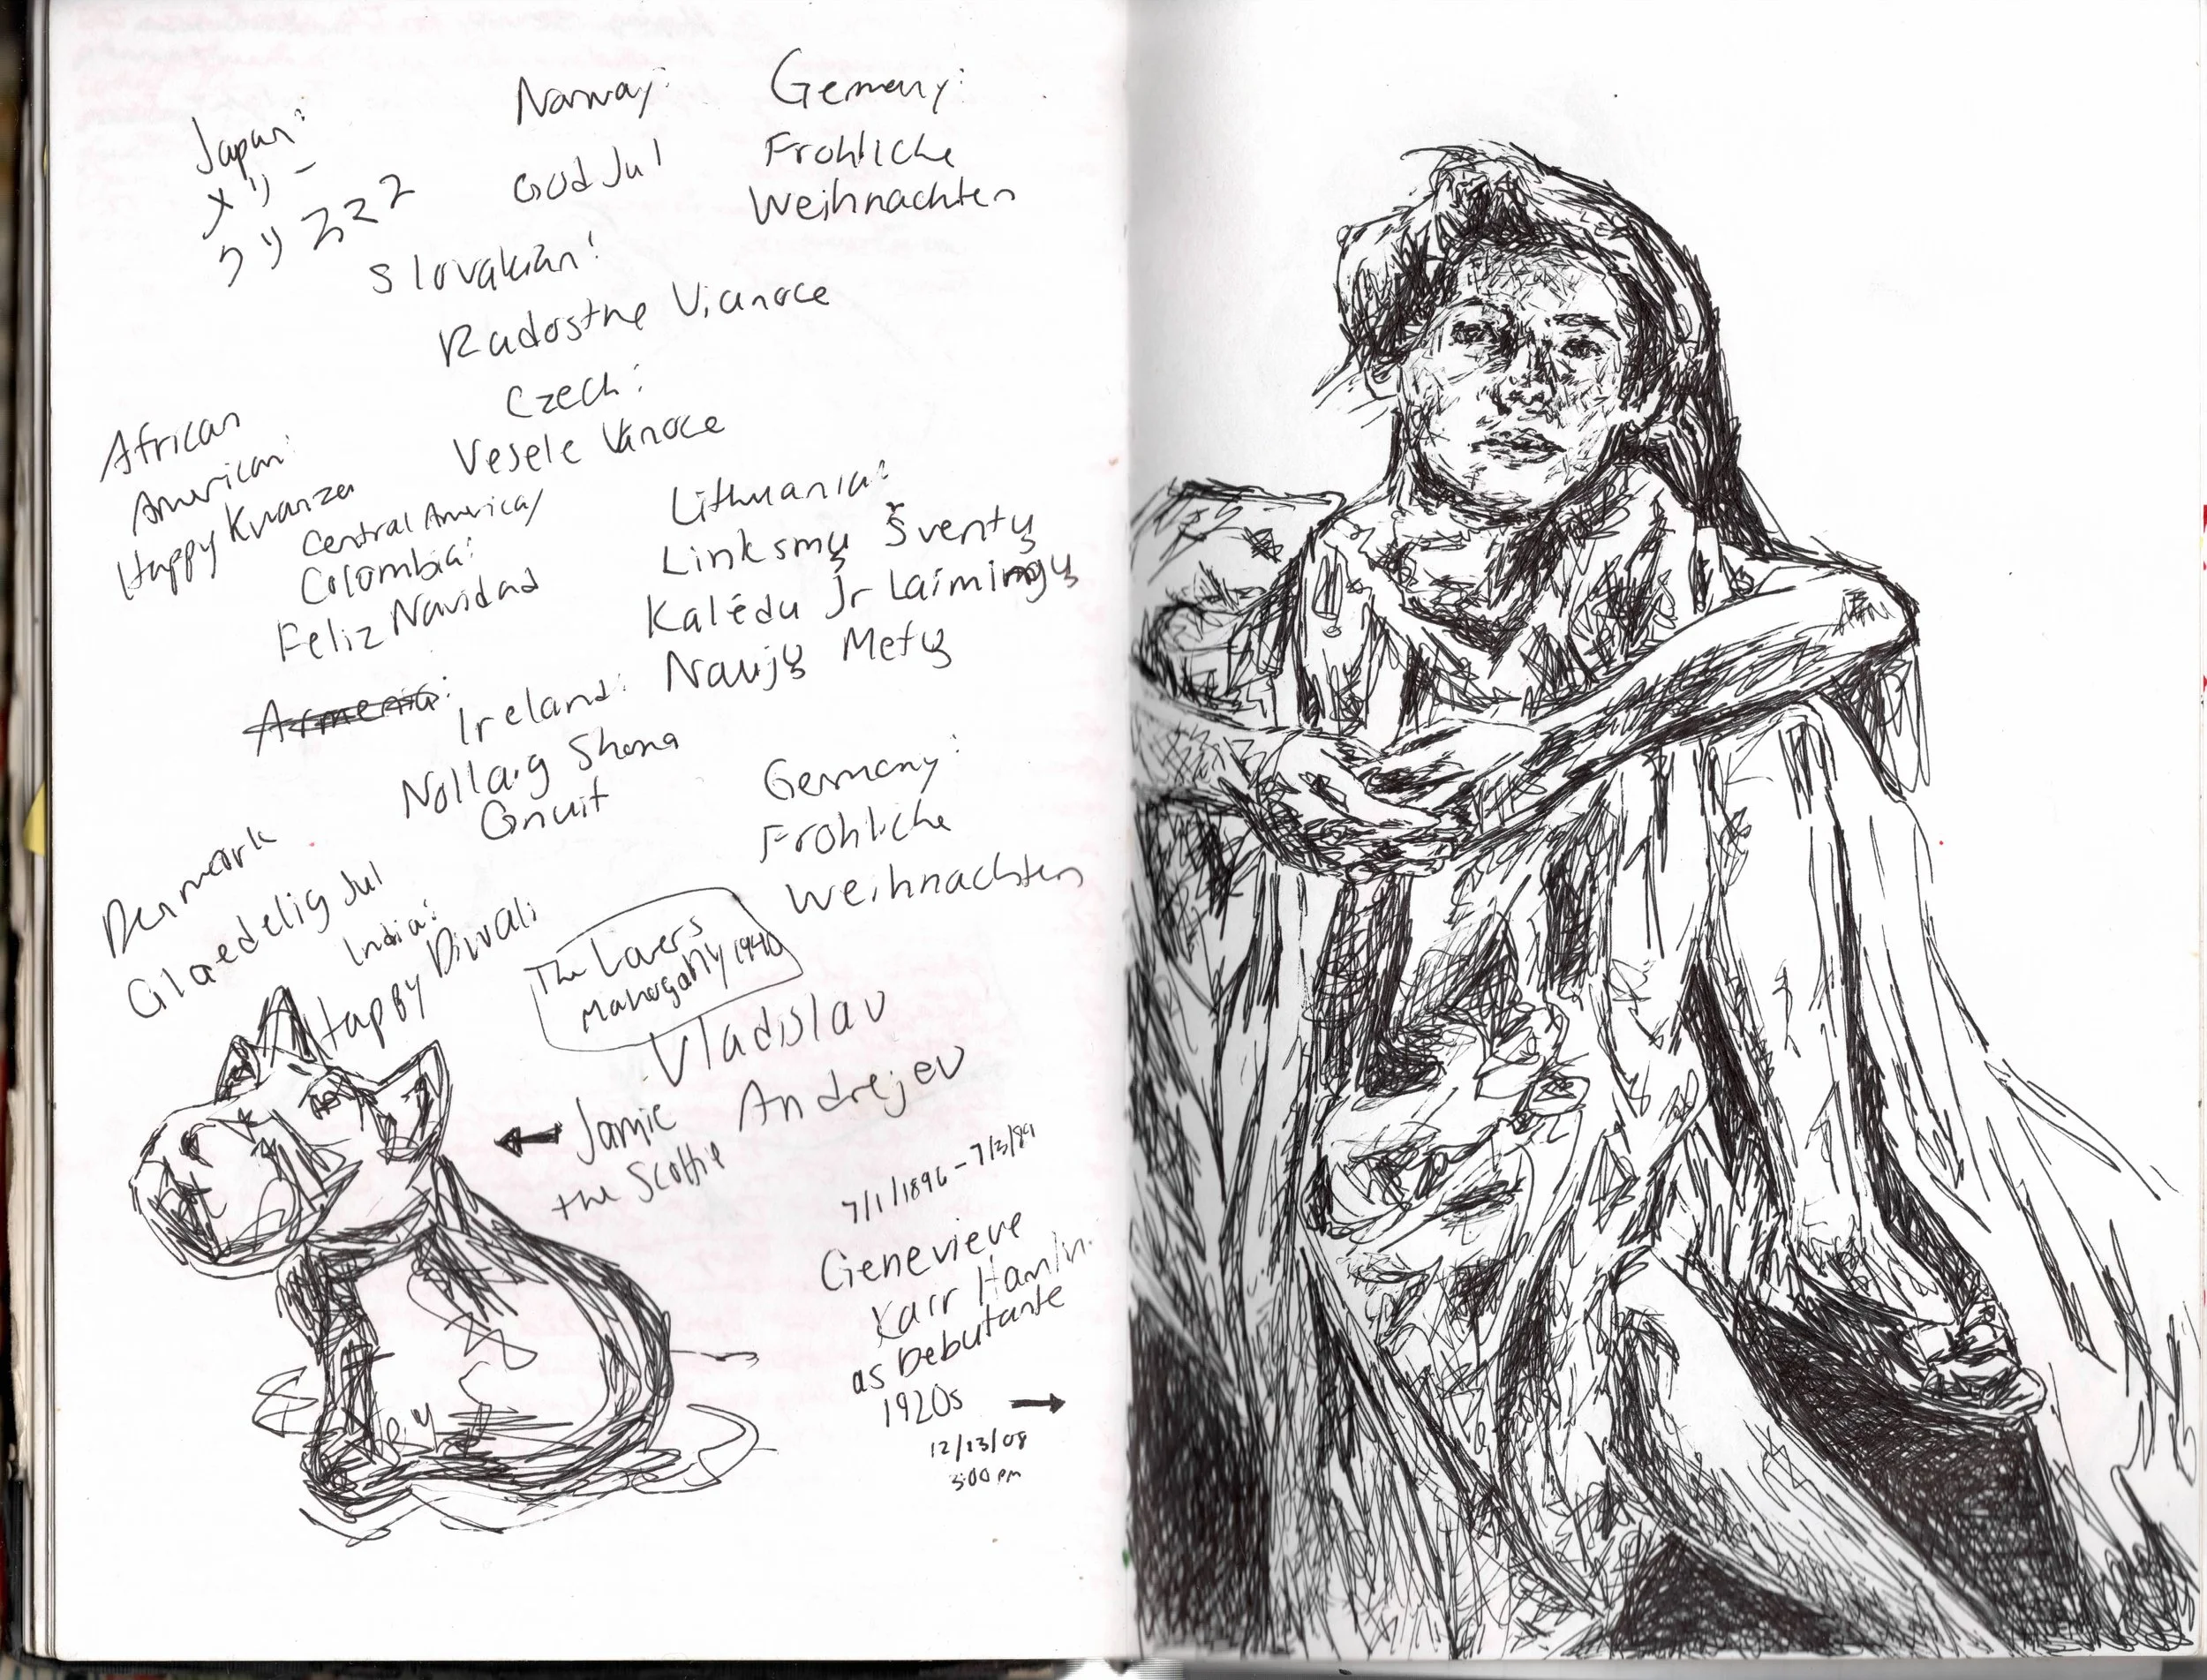 Japan:
メリー
クリスマス
Norway:
God Jul
Germany:
Frohliche
Weihnachten
Slovakian:
Radostne Vianoce
Czech:
Vesele Vanoce
African
American:
Happy Kwanza
Central America/
Colombia:
Feliz Navidad
Lithuania:
Linksmų Šventų
Kalėdu Ir Laimingų
Naujų Metų
Armenia:
Ireland:
Nollaig Shona
Gnuit
Germany:
Frohliche
Weihnachten
Denmark
Glaedelig Jul
India:
Happy Diwali
The Lovers
Mahogany 1940
Vladislav
Andrejev
Jamie
the Scottie
7/1/1896 - 7/3/89
Genevieve
Karr Hamlin
as Debutante
1920s
12/23/08
3:00 pm